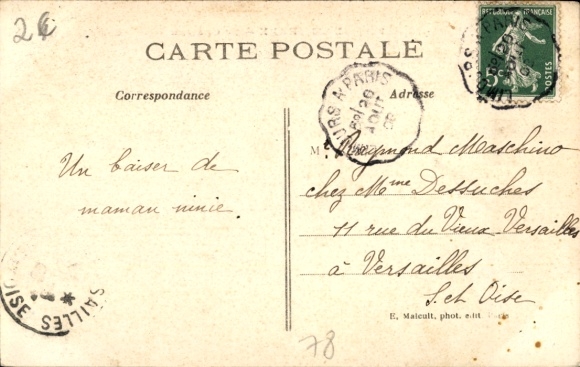 2€
CARTE POSTALE
Correspondance
Adresse
Un baiser de
maman ninie.
M Raymond Maschino
chez Mme Dessuches
11 rue du Vieux Versailles
à Versailles
S. et Oise
E. Malcuit, phot. édit. Paris
78
TOURS A PARIS
20
AOUT
08
RÉPUBLIQUE FRANÇAISE
5c
POSTES
SAILLES
OISE